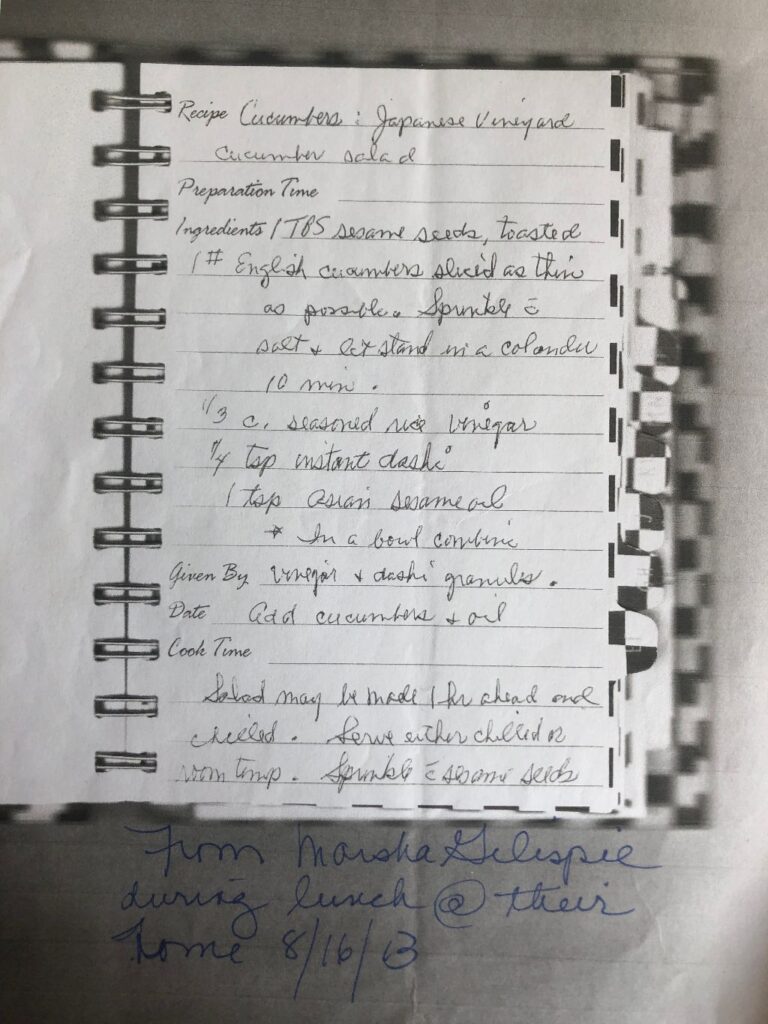 Recipe Cucumbers : Japanese Vineyard
cucumber salad
Preparation Time
Ingredients 1 TBS sesame seeds, toasted
1 # English cucumbers sliced as thin
as possible. Sprinkle c̄
salt + let stand in a colander
10 min.
1/3 c. seasoned rice vinegar
1/4 tsp instant dashi
1 tsp asian sesame oil
* In a bowl combine
Given By vinegar + dashi granules.
Date Add cucumbers + oil
Cook Time
Salad may be made 1 hr ahead and
chilled. Serve either chilled or
room temp. Sprinkle c̄ sesame seeds
From Marsha Gilispie
during lunch @ their
home 8/16/13